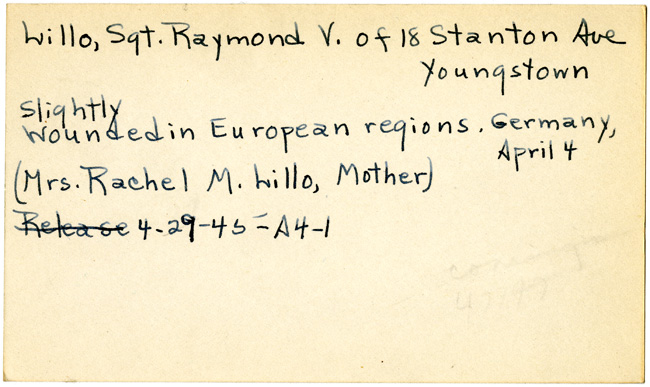 Lillo, Sgt. Raymond V. of 18 Stanton Ave
Youngstown
Slightly
Wounded in European regions. Germany,
April 4
(Mrs. Rachel M. Lillo, Mother)
Release 4-29-45-A4-1